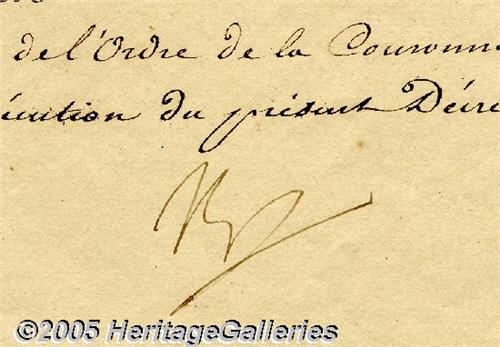 de l'Ordre de la Couronne
du présent Décre
©2005 HeritageGalleries